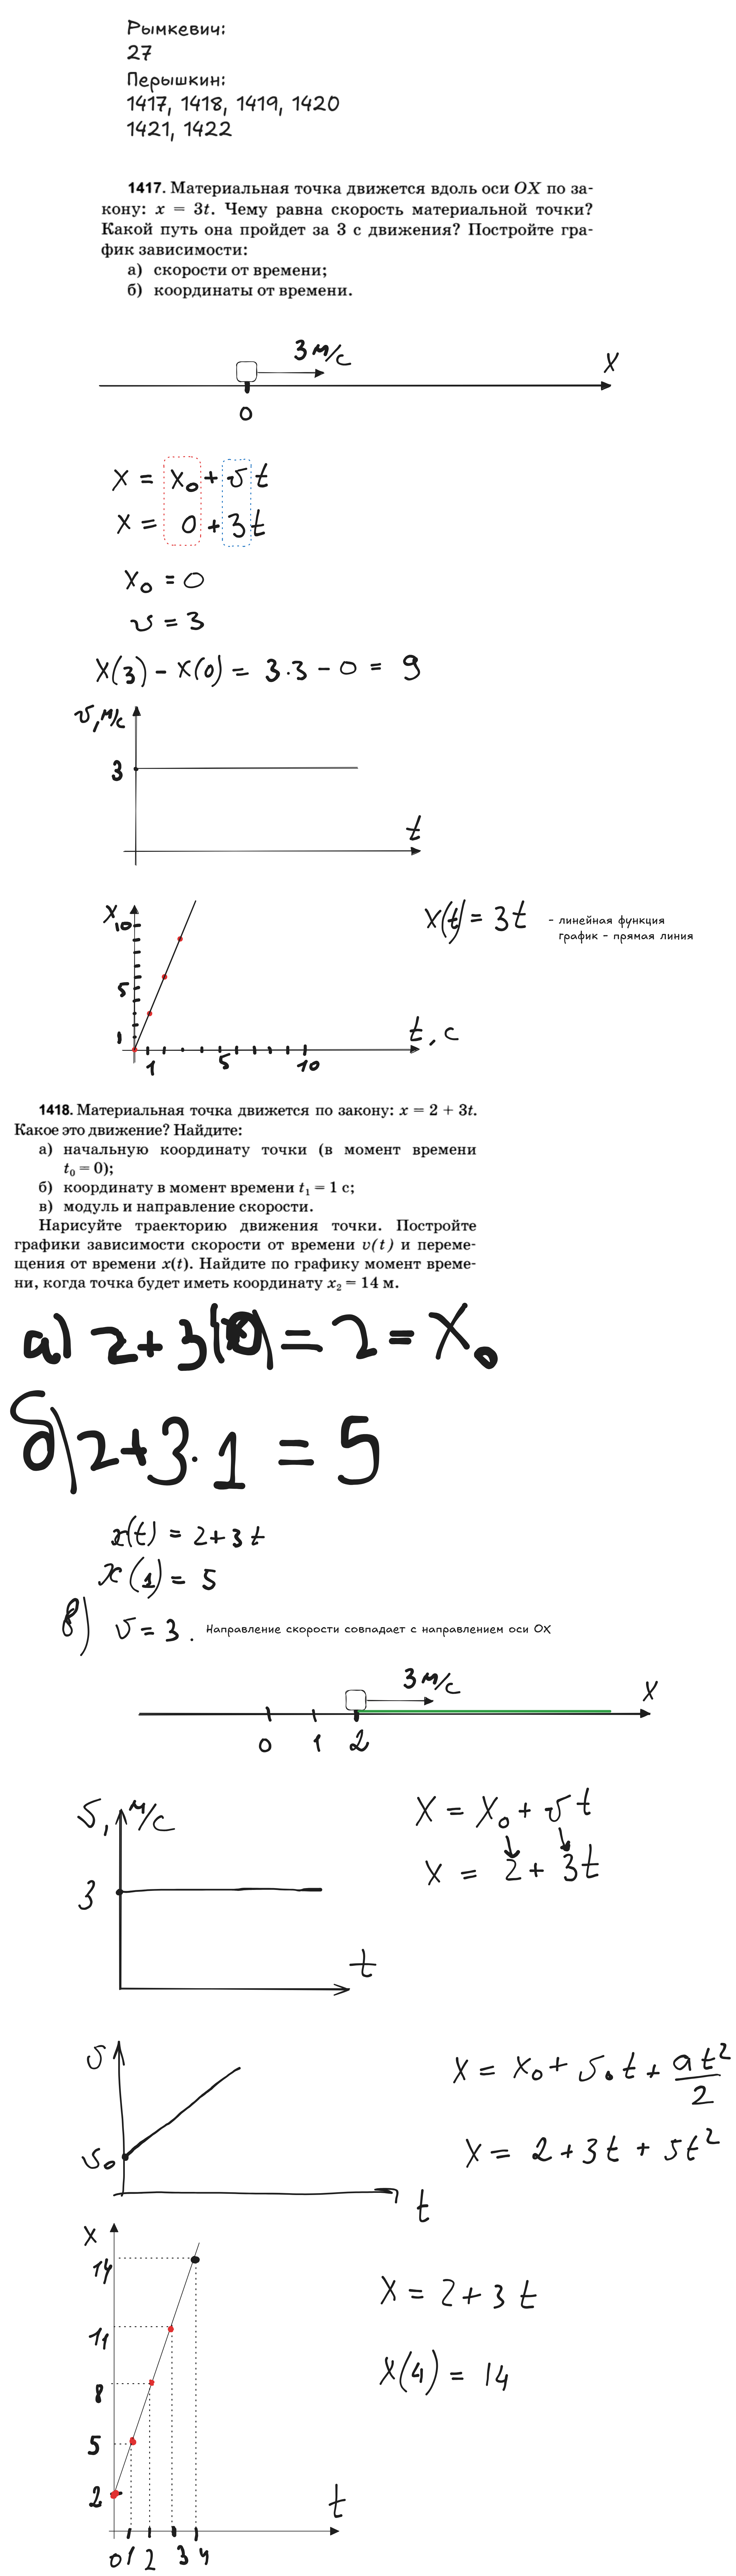 Рымкевич:
27
Перышкин:
1417, 1418, 1419, 1420
1421, 1422
1417. Материальная точка движется вдоль оси OX по за-
кону: x = 3t. Чему равна скорость материальной точки?
Какой путь она пройдет за 3 с движения? Постройте гра-
фик зависимости:
а) скорости от времени;
б) координаты от времени.
3 м/с
X
0
X = X₀ + υ t
X = 0 + 3 t
X₀ = 0
υ = 3
X(3) - X(0) = 3·3 - 0 = 9
υ, м/с
3
t
X
10
5
1
1 5 10
t, с
X(t) = 3t
- линейная функция
график - прямая линия
1418. Материальная точка движется по закону: x = 2 + 3t.
Какое это движение? Найдите:
а) начальную координату точки (в момент времени
t₀ = 0);
б) координату в момент времени t₁ = 1 с;
в) модуль и направление скорости.
Нарисуйте траекторию движения точки. Постройте
графики зависимости скорости от времени v(t) и переме-
щения от времени x(t). Найдите по графику момент време-
ни, когда точка будет иметь координату x₂ = 14 м.
а) 2+3(0) = 2 = X₀
б) 2+3·1 = 5
x(t) = 2+3t
x(1) = 5
в) υ = 3. Направление скорости совпадает с направлением оси OX
3 м/с
X
0 1 2
υ, м/с
3
t
X = X₀ + υt
X = 2 + 3t
υ
υ₀
t
X = X₀ + υ₀t + at²/2
X = 2 + 3t + 5t²
X
14
11
8
5
2
0 1 2 3 4
t
X = 2 + 3t
X(4) = 14